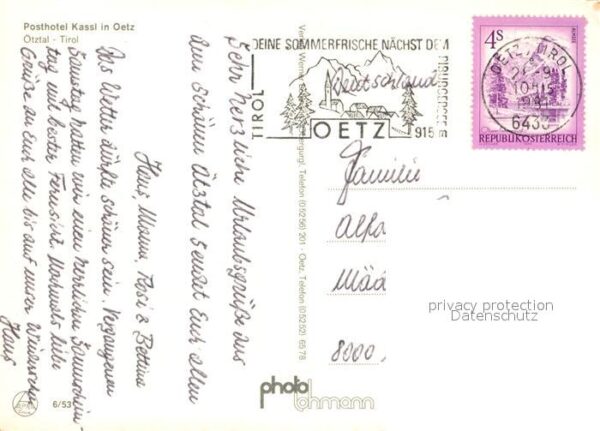 Posthotel Kassl in Oetz
Ötztal - Tirol
Sehr herzliche Urlaubsgrüße aus
dem schönen Ötztal sendet Euch allen
Hans, Mama, Rosi & Bettina
Das Wetter dürfte schöner sein. Vergangenen
Samstag hatten wir einen herrlichen Sonnenschein-
tag mit bester Fernsicht. Nochmals liebe
Grüße an Euch alle bis auf unser Wiedersehen
Hans
6/53
Telefon (05256) 201 - Oetz, Telefon (05252) 6578
DEINE SOMMERFRISCHE NÄCHST DEM
PIBURGERSEE
TIROL
OETZ
915m
Deutschland
4S
REPUBLIK ÖSTERREICH
OETZ, TIROL
10-15
6433
Familie
Alfa
Mäd
8000.
privacy protection
Datenschutz
photo
lohmann